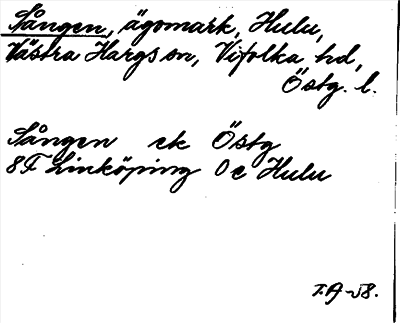 Sången, ägomark, Hulu,
Västra Hargs sn, Vifolka hd,
Östg. l.
Sången ek Östg
8F Linköping 0e Hulu